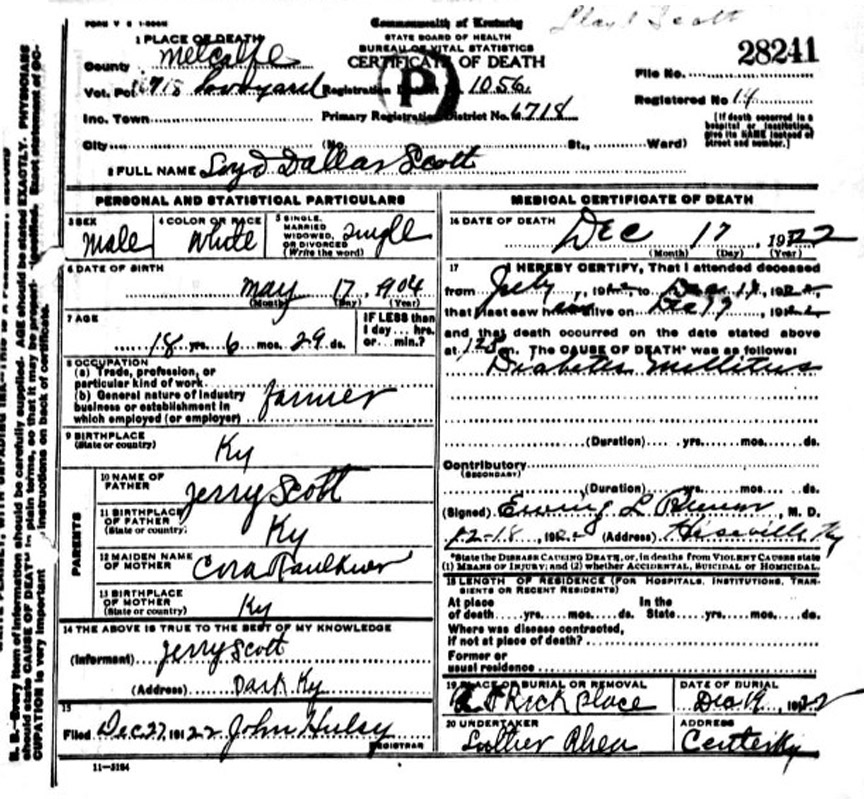 FORM V S 1-
Lloyd Scott
Commonwealth of Kentucky
STATE BOARD OF HEALTH
BUREAU OF VITAL STATISTICS
CERTIFICATE OF DEATH
28241
File No.
Registered No 14
[If death occurred in a hospital or institution, give its NAME instead of street and number.]
1 PLACE OF DEATH
County Metcalfe
Vot. Pct 6718 Registration District No. 1056
P
Inc. Town Primary Registration District No. 6718
City (No. St., Ward)
2 FULL NAME Loyd Dallas Scott
PERSONAL AND STATISTICAL PARTICULARS
3 SEX Male
4 COLOR OR RACE White
5 SINGLE, MARRIED WIDOWED, OR DIVORCED (Write the word) Single
6 DATE OF BIRTH
May 17 1904
(Month) (Day) (Year)
7 AGE
18 yrs. 6 mos. 29 ds.
IF LESS than 1 day... hrs. or... min.?
8 OCCUPATION
(a) Trade, profession, or particular kind of work
(b) General nature of industry business or establishment in which employed (or employer) farmer
9 BIRTHPLACE (State or country) Ky
PARENTS
10 NAME OF FATHER Jerry Scott
11 BIRTHPLACE OF FATHER (State or country) Ky
12 MAIDEN NAME OF MOTHER Cora Faulkner
13 BIRTHPLACE OF MOTHER (State or country) Ky
14 THE ABOVE IS TRUE TO THE BEST OF MY KNOWLEDGE
(Informant) Jerry Scott
(Address) Ky
15
Filed Dec 27, 1922 John Hulsy
REGISTRAR
11-3184
MEDICAL CERTIFICATE OF DEATH
16 DATE OF DEATH
Dec 17 1922
(Month) (Day) (Year)
17 I HEREBY CERTIFY, That I attended deceased
from July, 1922, to Dec 17, 1922,
that I last saw him alive on Dec 17, 1922
and that death occurred on the date stated above
at m. The CAUSE OF DEATH* was as follows:
Diabetes Mellitus
(Duration) yrs. mos. ds.
Contributory
(SECONDARY)
(Duration) yrs. mos. ds.
(Signed) L, M. D.
12-18, 1922 (Address) Hiseville Ky
*State the DISEASE CAUSING DEATH, or, in deaths from VIOLENT CAUSES state
(1) MEANS OF INJURY; and (2) whether ACCIDENTAL, SUICIDAL or HOMICIDAL.
18 LENGTH OF RESIDENCE (FOR HOSPITALS, INSTITUTIONS, TRANSIENTS OR RECENT RESIDENTS)
At place of death yrs. mos. ds. In the State yrs. mos. ds.
Where was disease contracted, if not at place of death?
Former or usual residence
19 PLACE OF BURIAL OR REMOVAL
Rich place
DATE OF BURIAL
Dec 19, 1922
20 UNDERTAKER
Luther Rhea
ADDRESS
Center Ky
N. B.-Every item of information should be carefully supplied. AGE should be stated EXACTLY. PHYSICIANS
should state CAUSE OF DEATH in plain terms, so that it may be properly classified. Exact statement of OC-
CUPATION is very important instructions on back of certificate.